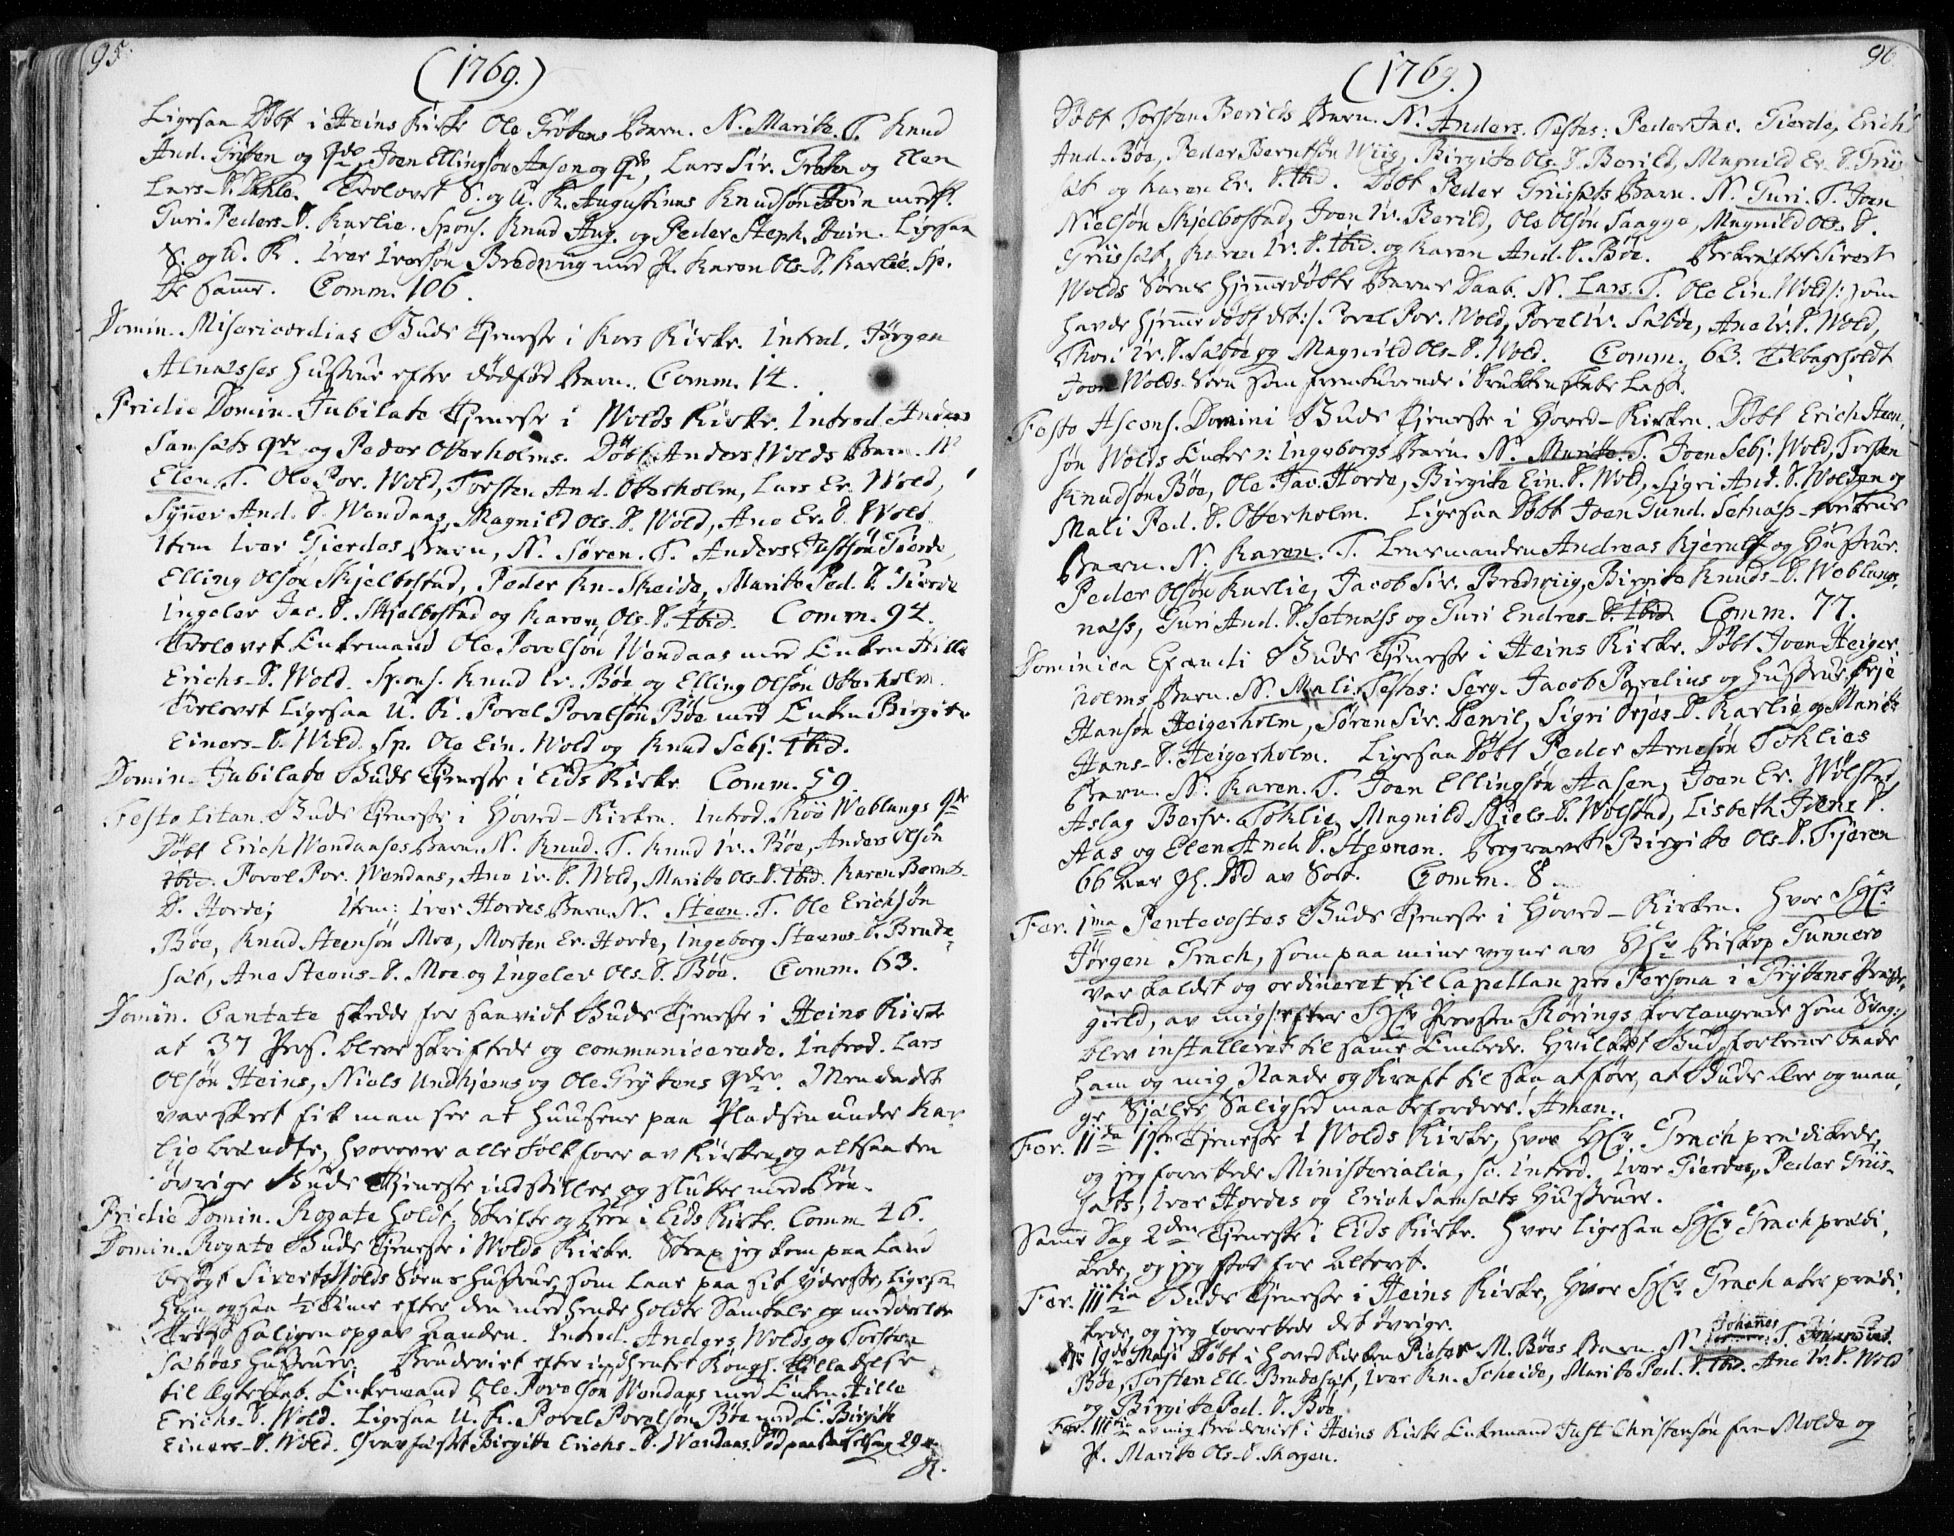 95.
(1769.)
Ligesaa Døbt i Heins Kirke Ole Grøtens Barn. N. Marite. T. Knud
And. Grøten og qde, Joen Ellingsøn Aasen og qde, Lars Siv. Grøten og Elen
Lars-D. Dahle. Trolovet S. og U. K. Augustinus Knudsøn med P.
Guri Peders-D. Karlie. Spons. Knud Aug. og Peder Steph. Ligesaa
S. og U. K. Iver Iversøn Bredviig med P. Karen Ols-D. Karlie. Sp.
De samme. Comm. 106.
Domin. Misericordias Guds Tjeneste i Kors Kirke. Introd. Jørgen
Alnæsses Hustrue efter dødfød Barn. Comm. 14.
Pridie Domin. Jubilate Tjeneste i Wolds Kirke. Introd. Anders
Samsæts qde og Peder Otterholms. Døbt Anders Wolds Barn. N.
Elen. T. Ole Pov. Wold, Torsten And. Otterholm, Lars Er. Wold,
Synnev And. D. Wendaas, Magnild Ols. D. Wold, Ane Er. D. Wold
Item Iver Gierdes Barn, N. Søren. T. Anders Gierde,
Elling Olsøn Skjelbostad, Peder Kn. Skeide, Marite Ped. D. Gierde
Ingelev Jac. D. Skjelbostad og Karen Ols. D. ibid. Comm. 94.
Trolovet Enkemand Ole Povelsøn Wendaas med Enken Hille
Erichs-D. Wold. Spons. Knud Iv. Bøe og Elling Olsøn Otterholm.
Trolovet Ligesaa U. K. Povel Povelsøn Bøe med Enken Birgite
Einers-D. Wold. Sp. Ole Ein. Wold og Knud Sebj. ibid.
Domin. Jubilate Guds Tjeneste i Eids Kirke Comm. 59.
Festo Litan. Guds Tjeneste i Hoved-Kirken. Introd. Roø Weblungs qde
Døbt Erich Wendaases Barn. N. Knud. T. Knud Iv. Bøe, Anders Olsøn
ibid. Povel Pov. Wendaas, Ane Iv. D. Wold, Marite Ols. D. ibid. Karen Bernts-
D. Horde; Item: Iver Hordes Barn. N. Steen. T. Ole Erichsøn
Bøe, Knud Steensøn Moe, Morten Er. Horde, Ingeborg Steens-D. Brude-
sæt, Ane Steens-D. Moe og Ingelev Ols. D. Bøe. Comm. 63.
Domin. Cantate skedde for saavidt Guds Tjeneste i Heins Kirke
at 37 Pers. bleve skriftede og communicerede. Introd. Lars
Olsøn Heins, Niels Undhjems og Ole Grytens qder. Men da det
var skeet fik man see at Huusene paa Pladsen under Kar-
lie brændte, hvorover alle Folk fore av Kirken, og altsaa den
øvrige Guds Tjeneste indstilles og sluttes med Bøn.
Pridie Domin. Rogate Holdt Skrifte og Bøn i Eids Kirke. Comm. 26.
Domin. Rogate Guds Tjeneste i Wolds Kirke. Strax jeg kom paa Land
besøgt Sivert Wolds Søens Hustrue, som laae paa sit yderste, Ligesaa
Hun ogsaa ½ Time efter den med hende holdte Samtale og meddeelte
Trøst saligen opgav Aanden. Introd. Anders Wolds og Torsten
Sæbøes Hustruer. Brudeviet efter indhentet Kongl. Tilladelse
til Ægteskab. Enkemand Ole Povelsøn Wendaas med Enken Hille
Erichs-D. Wold. Ligesaa U. K. Povel Povelsøn Bøe med E. Birgitte
Einers-D. Wold. Gravfæstet Birgitte Erichs-D. Wendaas. 29
gl.
96.
(1769.)
Døbt Torsten Berilds Barn. N. Anders. Testes: Peder Jac. Gierde, Erich
And. Bøe, Peder Berntsøn Wiig, Birgite Ols-D. Berild, Magnild Er. D. Griis-
sæt og Karen Er. D. ibid. Døbt Peder Griissæts Barn. N. Guri. T. Joen
Nielsøn Skjelbostad, Joen Iv. Berild, Ole Olsøn Saagge, Magnild Ols. D.
Griissæt, Karen Iv. D. ibid. og Karen And. D. Bøe. Bekræftet Sivert
Wolds Søens hjemmedøbte Barns Daab. N. Lars. T. Ole Ein. Wold /: som
havde hjemme døbt det :/. Povel Pov. Wold, Povel Iv. Sæbøe, Ane Iv. D. Wold,
Thori Iv. D. Sæbøe og Magnild Ols-D. Wold. Comm. 63. Tilbageholdt
Joen Wolds Søn som fremturende i Drukkenskabs Last.
Festo Ascens. Domini Guds Tjeneste i Hoved-Kirken. Døbt Erich Steen-
søn Wolds Enkes :/: Ingeborgs Barn. N. Marite. T. Joen Sebj. Wold, Torsten
Knudsøn Bøe, Ole Jac. Horde, Birgite Ein. D. Wold, Sigri And. D. Wolden og
Mali Ped. D. Otterholm. Ligesaa Døbt Joen Gund. Setnæss
Barn. N. Karen. T. Lensmanden Andreas Kjerulf og Hustrue.
Peder Olsøn Karlie, Jacob Siv. Bredviig, Birgite Knuds-D. Weblungs-
næss, Guri And. D. Setnæss og Guri Endres-D. ibid. Comm. 77.
Dominica Exaudi Guds Tjeneste i Heins Kirke. Døbt Iven Heiger-
holms Barn. N. Mali. Testes: Serg. Jacob Parelius og Hustrue,
Hansøn Heigerholm, Søren Siv. Devil, Sigri Orjes-D. Karlie og Marite
Hans-D. Heigerholm. Ligesaa Døbt Peder Arnesøn Toklies
Barn. N. Karen. T. Joen Ellingsøn Aasen, Joen Er. Wolstad,
Aslag Bersv. Toklie, Magnild Niels-D. Wolstad, Lisbeth Joens D.
Aas og Elen And. D. Begravet Birgite Ols-D. Fjeren
66 Aar gl. Død av Sot. Comm. 8.
Fer. Ima Pentecostes Guds Tjeneste i Hoved-Kirken. Hvor Hr.
Jørgen Grach, som paa mine vegne av Hr. Biskop Gunnero
var kaldet og ordineret til Capellan pro Persona i Grytens Præste-
gield, av mig /: efter Hr. Provsten Rørings forlangende som :/
blev installeret til samme Embede. Hvilket Gud forleene baade
ham og mig Naade og Kraft til saa at føre, at Guds Ære og man-
ge Sjæles Salighed maa befordres! Amen.
Fer. IIda 1ste Tjeneste i Wolds Kirke, hvor Hr. Grach prædikede,
og jeg forrettede Ministerialia, sc. Introd. Iver Gierdes, Peder Griis-
sæts, Iver Hordes og Erich Samsæts Hustruer.
Samme Dag 2den Tjeneste i Eids Kirke. Hvor ligesaa Hr. Grach prædi-
kede, og jeg stod for Alteret.
Fer. IIItia Guds Tjeneste i Heins Kirke, hvor Hr. Grach atter prædi-
kede, og jeg forrettede det øvrige.
d. 19de Maji Døbt i Hoved Kirken Pieter M. Bøes Barn N. Johannes T.
Bøe, Torsten Ell. Brudesæt, Iver Kn. Scheide, Marite Ped. D. ibid. Ane Iv. D. Wold
og Birgite Ped. D. Bøe.
Fer. IIItia av mig Brudeviet i Heins Kirke Enkemand Just Christensøn fra Molde og
P. Marite Ols-D. Skorgen.